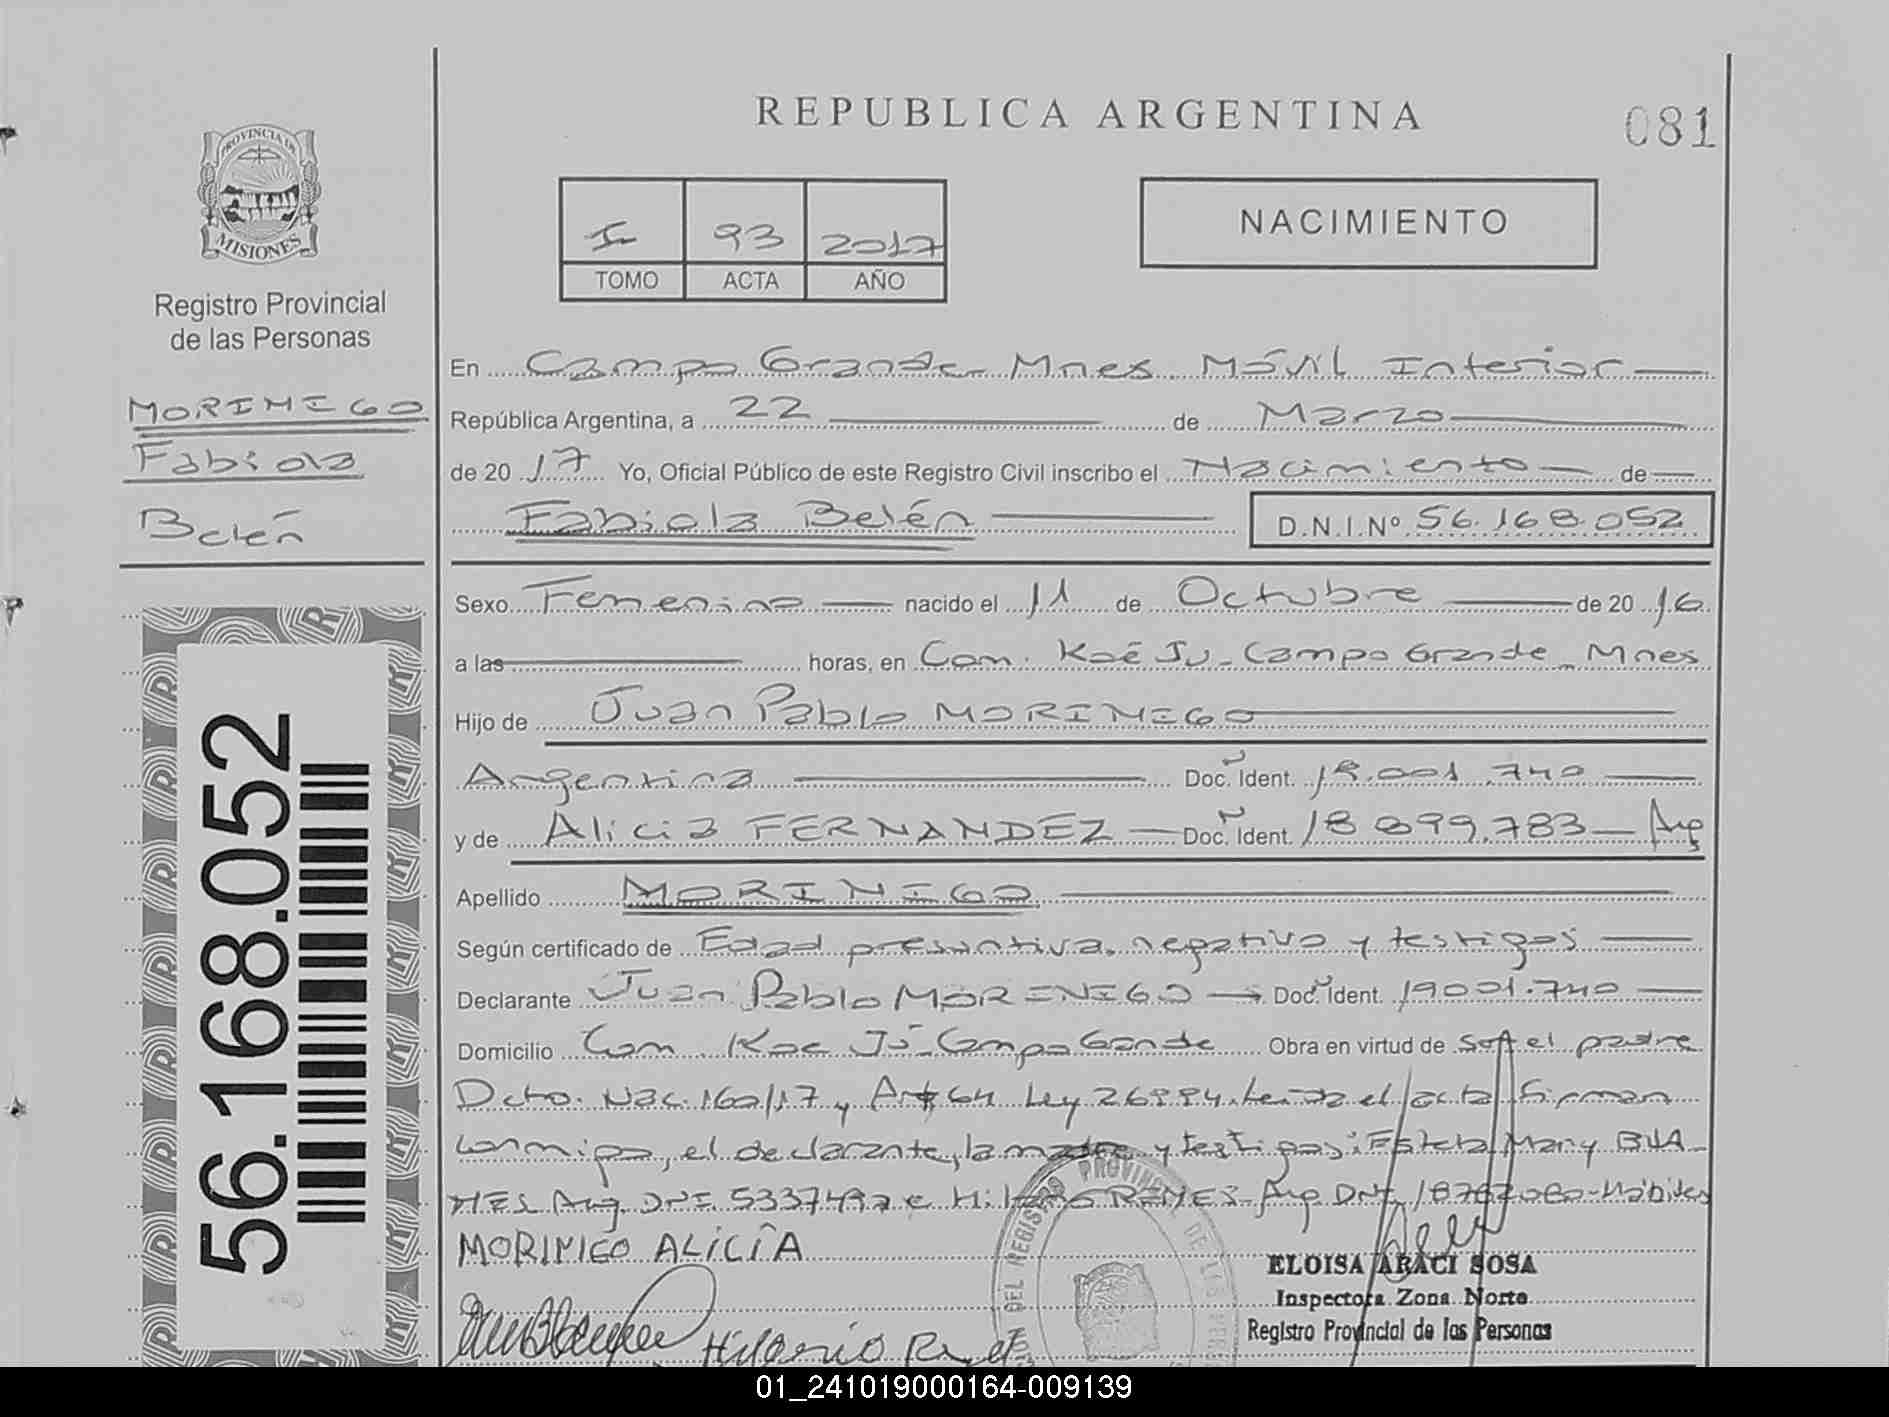 REPUBLICA ARGENTINA
081
PROVINCIA DE
MISIONES
Registro Provincial
de las Personas
I 93 2017
TOMO ACTA AÑO
NACIMIENTO
MORINIGO
Fabiola
Belén
56.168.052
En Campo Grande Mnes Móvil Interior
República Argentina, a 22 de Marzo
de 2017 Yo, Oficial Público de este Registro Civil inscribo el Nacimiento de
Fabiola Belén D.N.I.Nº 56.168.052
Sexo Femenino nacido el 11 de Octubre de 2016
a las horas, en Com. Kaé Ju - Campo Grande - Mnes
Hijo de Juan Pablo MORINIGO
Argentina Doc. Ident. 19.001.740
y de Alicia FERNANDEZ Doc. Ident. 18.899.783 Arg
Apellido MORINIGO
Según certificado de Edad presuntiva, negativo y testigos
Declarante Juan Pablo MORINIGO Doc. Ident. 19001.740
Domicilio Com. Kae Jú - Campo Grande Obra en virtud de ser el padre
Dcto. Nac. 160/17 y Art 64 Ley 26994. Leída el acta firman
conmigo, el declarante, la madre y testigos: Estela Mary
Arg. DNI 5337497 e Hilario Arg DNI 18767080 - Hábiles
MORINIGO ALICIA
Hilario
DEL REGISTRO PROVINCIAL DE LAS
ELOISA ARACI SOSA
Inspectora Zona Norte
Registro Provincial de las Personas
01_241019000164-009139